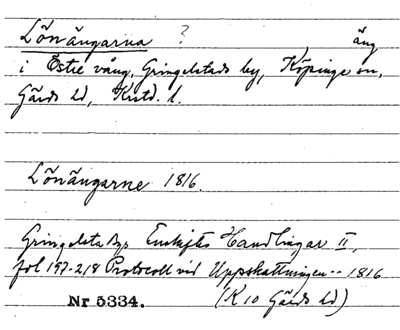 Lönängarna ? äng
i Östre vång, Gringelstads by, Köpinge sn,
Gärds hd, Krstd. l.
Lönängarne 1816.
Gringelsta Bys Enskiftes Handlingar II,
fol 197-218 Protocoll vid Uppskattningen -- 1816
Nr 5334. (K 10 Gärds hd)